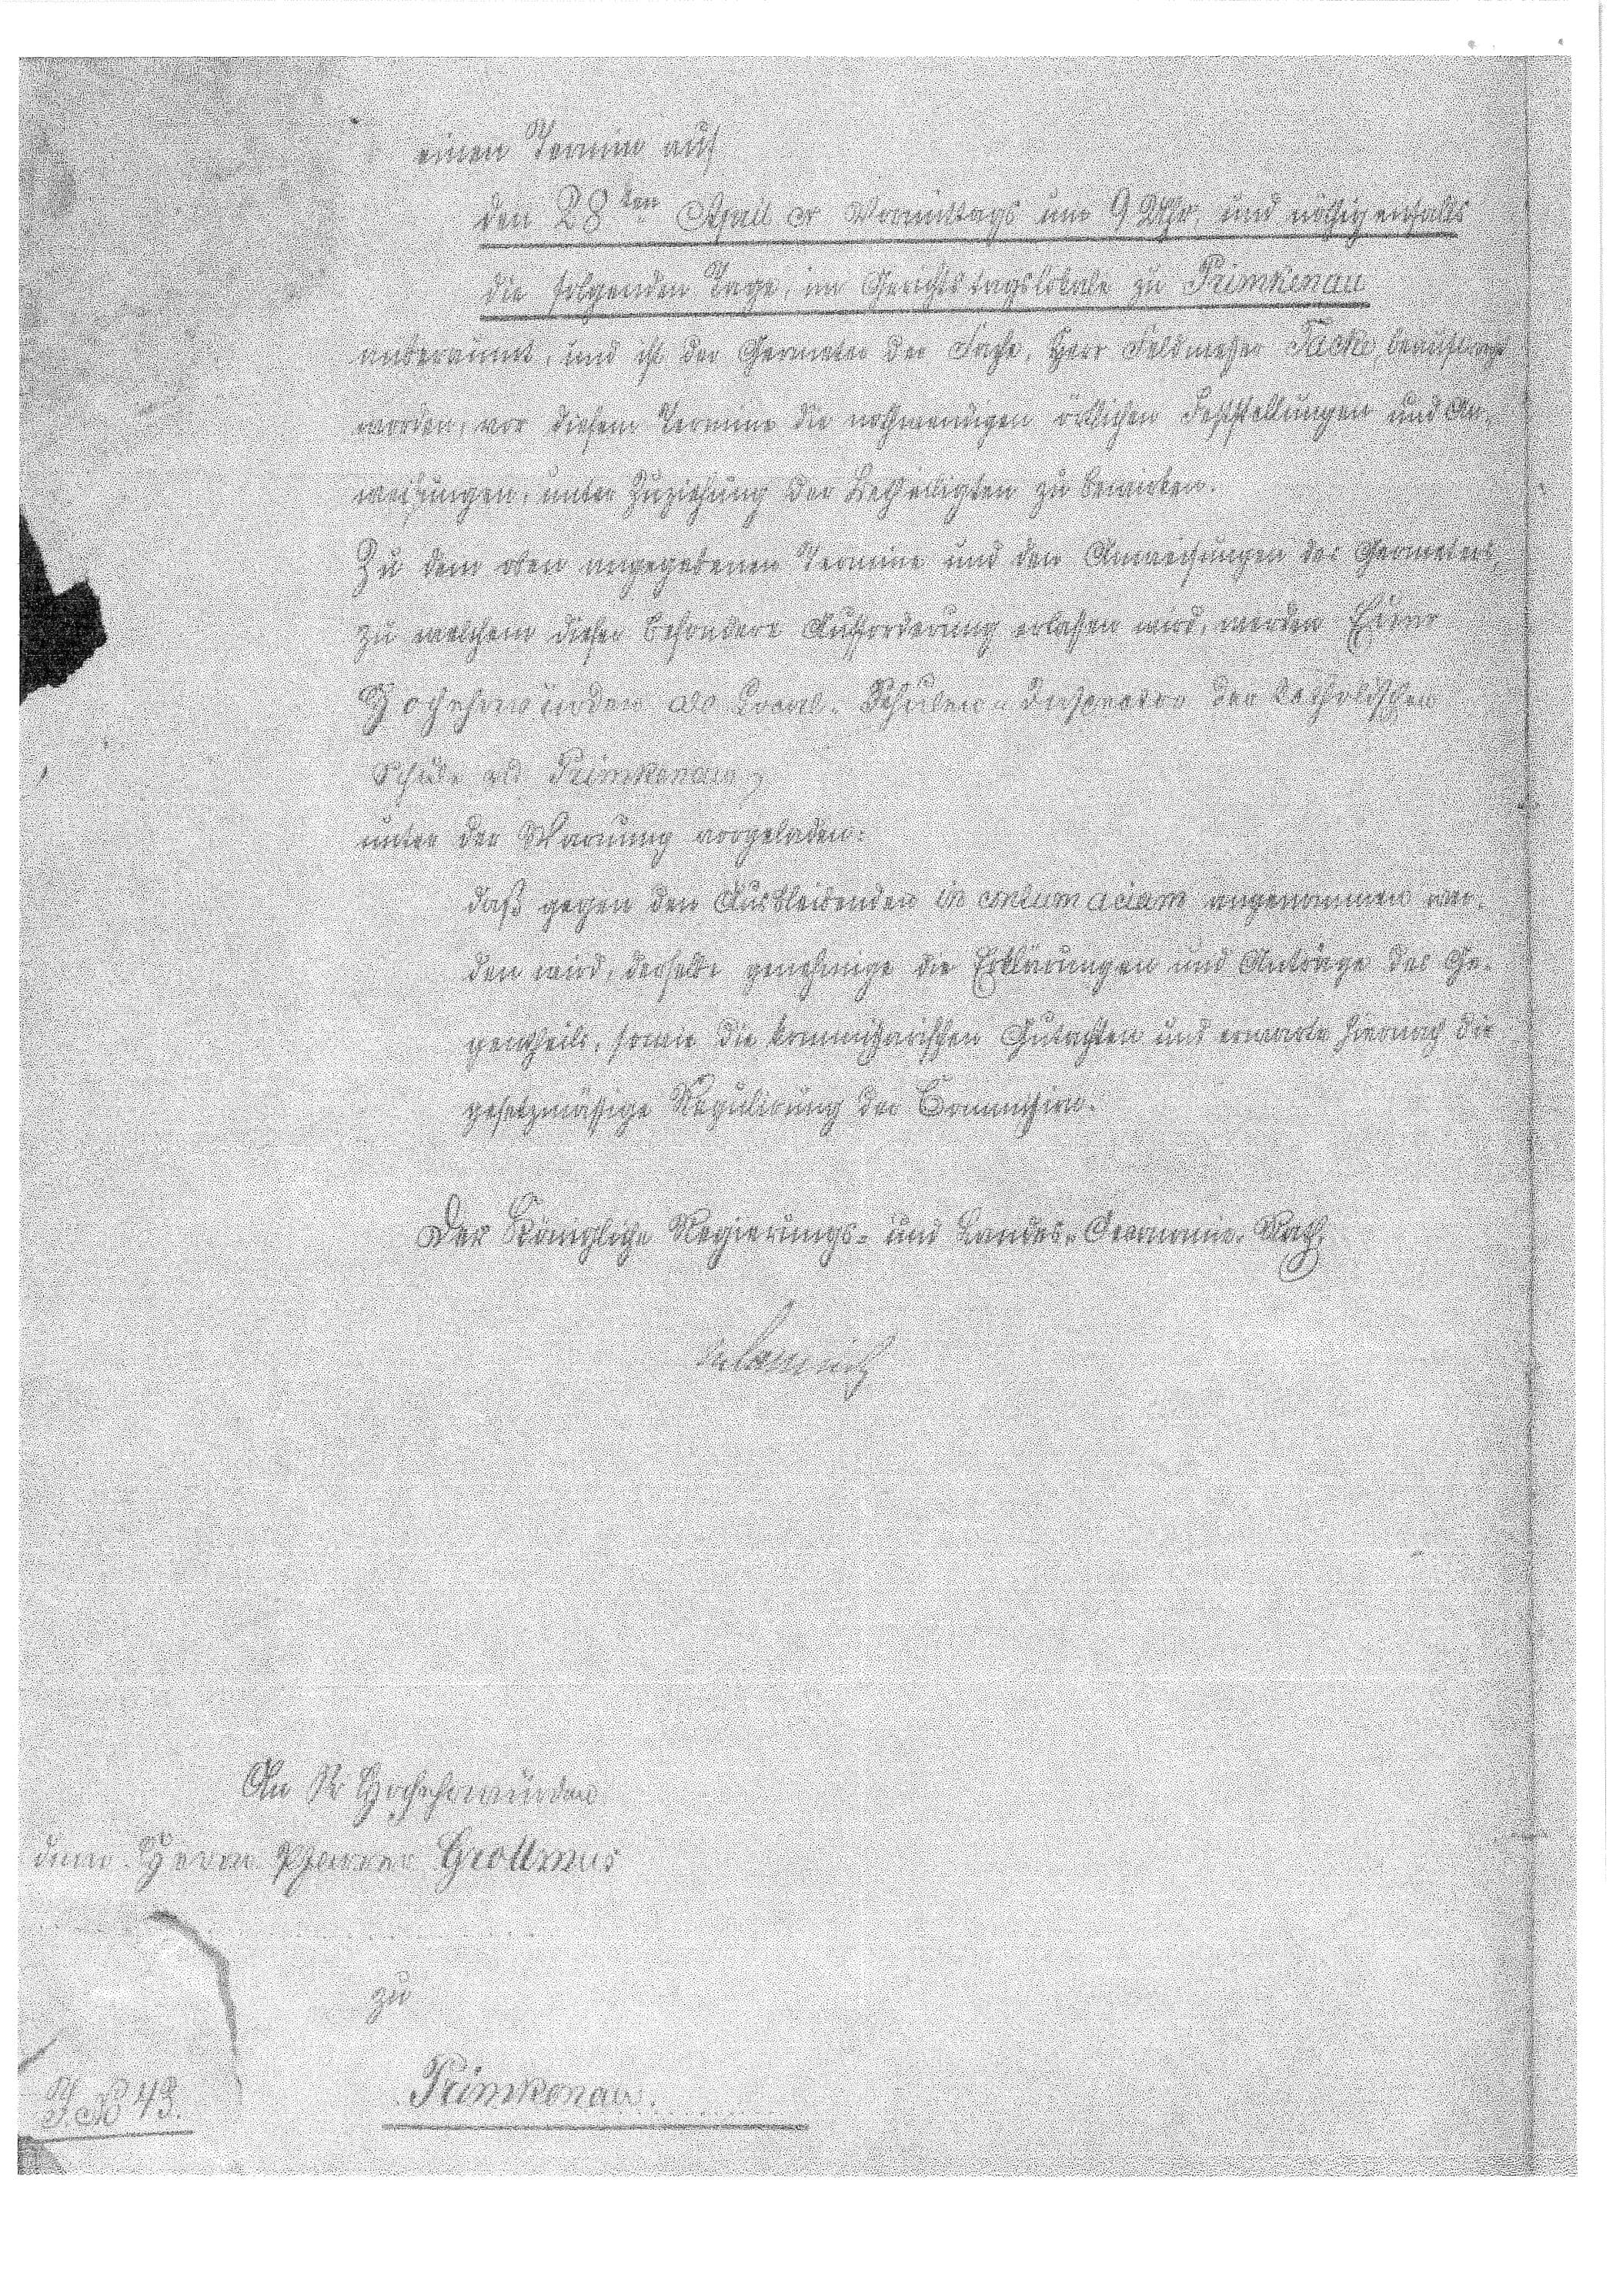 einen Termin auf
den 28ten April cr Vormittags um 9 Uhr, und nöthigenfalls
die folgenden Tage, im Gerichtstagslokale zu Primkenau
anberaumt, und ist der Geometer der Sache, Herr Feldmesser Tacke, beauftragt
worden, vor diesem Termine die nothwendigen örtlichen Feststellungen und An-
weisungen, unter Zuziehung der Betheiligten zu bewirken.
Zu dem oben angegebenen Termine und den Anweisungen des Geometers,
zu welchem dieser besondere Aufforderung erlassen wird, werden Euer
Hochehrwürden als Local-Schulen-Inspector der katholischen
Schule zu Primkenau,
unter der Warnung vorgeladen:
daß gegen den Ausbleibenden in contumaciam angenommen wer-
den wird, derselbe genehmige die Erklärungen und Anträge des Ge-
gentheils, sowie die kommissarischen Gutachten und erwarte hiernach die
gesetzmässige Regulirung der Commission.
Der Königliche Regierungs- und Landes-Oeconomie-Rath.
An Sr Hochehrwürden
dem Herrn Pfarrer Grottmus
zu
Primkenau.
J. No 43.